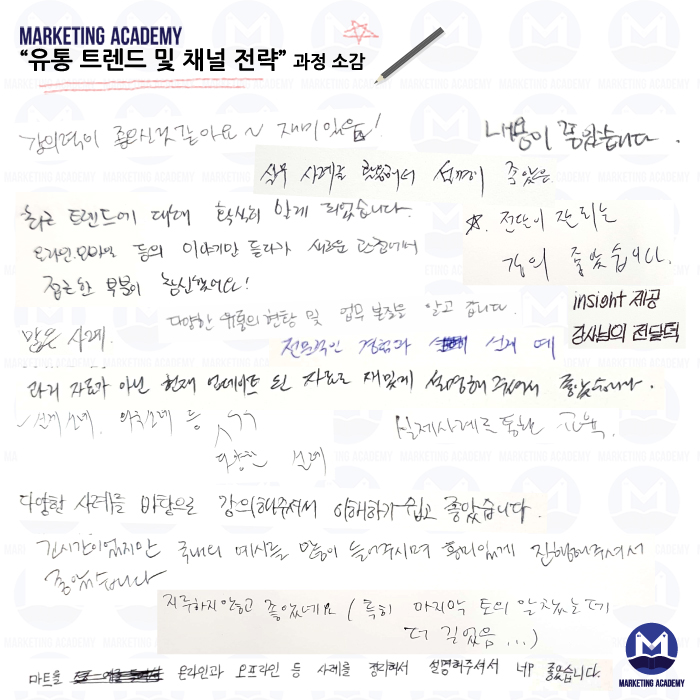 MARKETING ACADEMY
“유통 트렌드 및 채널 전략” 과정 소감
강의력이 좋으신것같아요 ~ 재미있음!
내용이 좋았습니다.
실무 사례를 활용해서 설명이 좋았음.
최근 트렌드에 대해 확실히 알게 되었습니다.
온라인.모바일 등의 이야기만 듣다가 새로운 관점에서
접근한 부분이 참신했어요!
☆. 전달이 잘 되는
강의 좋았습니다.
insight 제공
강사님의 전달력
다양한 유통의 현황 및 업무 본질을 알고 갑니다.
많은 사례.
전문적인 경험과
과거 자료가 아닌 현재 업데이트 된 자료로 재밌게 설명해주셔서 좋았습니다.
등
다양한
실제사례로 통한 교육.
다양한 사례를 바탕으로 강의해주셔서 이해하기 쉽고 좋았습니다.
긴시간이었지만 국내외 예시를 많이 들어주시며 흥미있게 진행해주셔서
좋았습니다
지루하지않고 좋았네요 (특히 마지막 토의 알찼는데
더 길었음...)
마트을 온라인과 오프라인 등 사례를 정리해서 설명해주셔서 너무 좋았습니다.
MARKETING ACADEMY